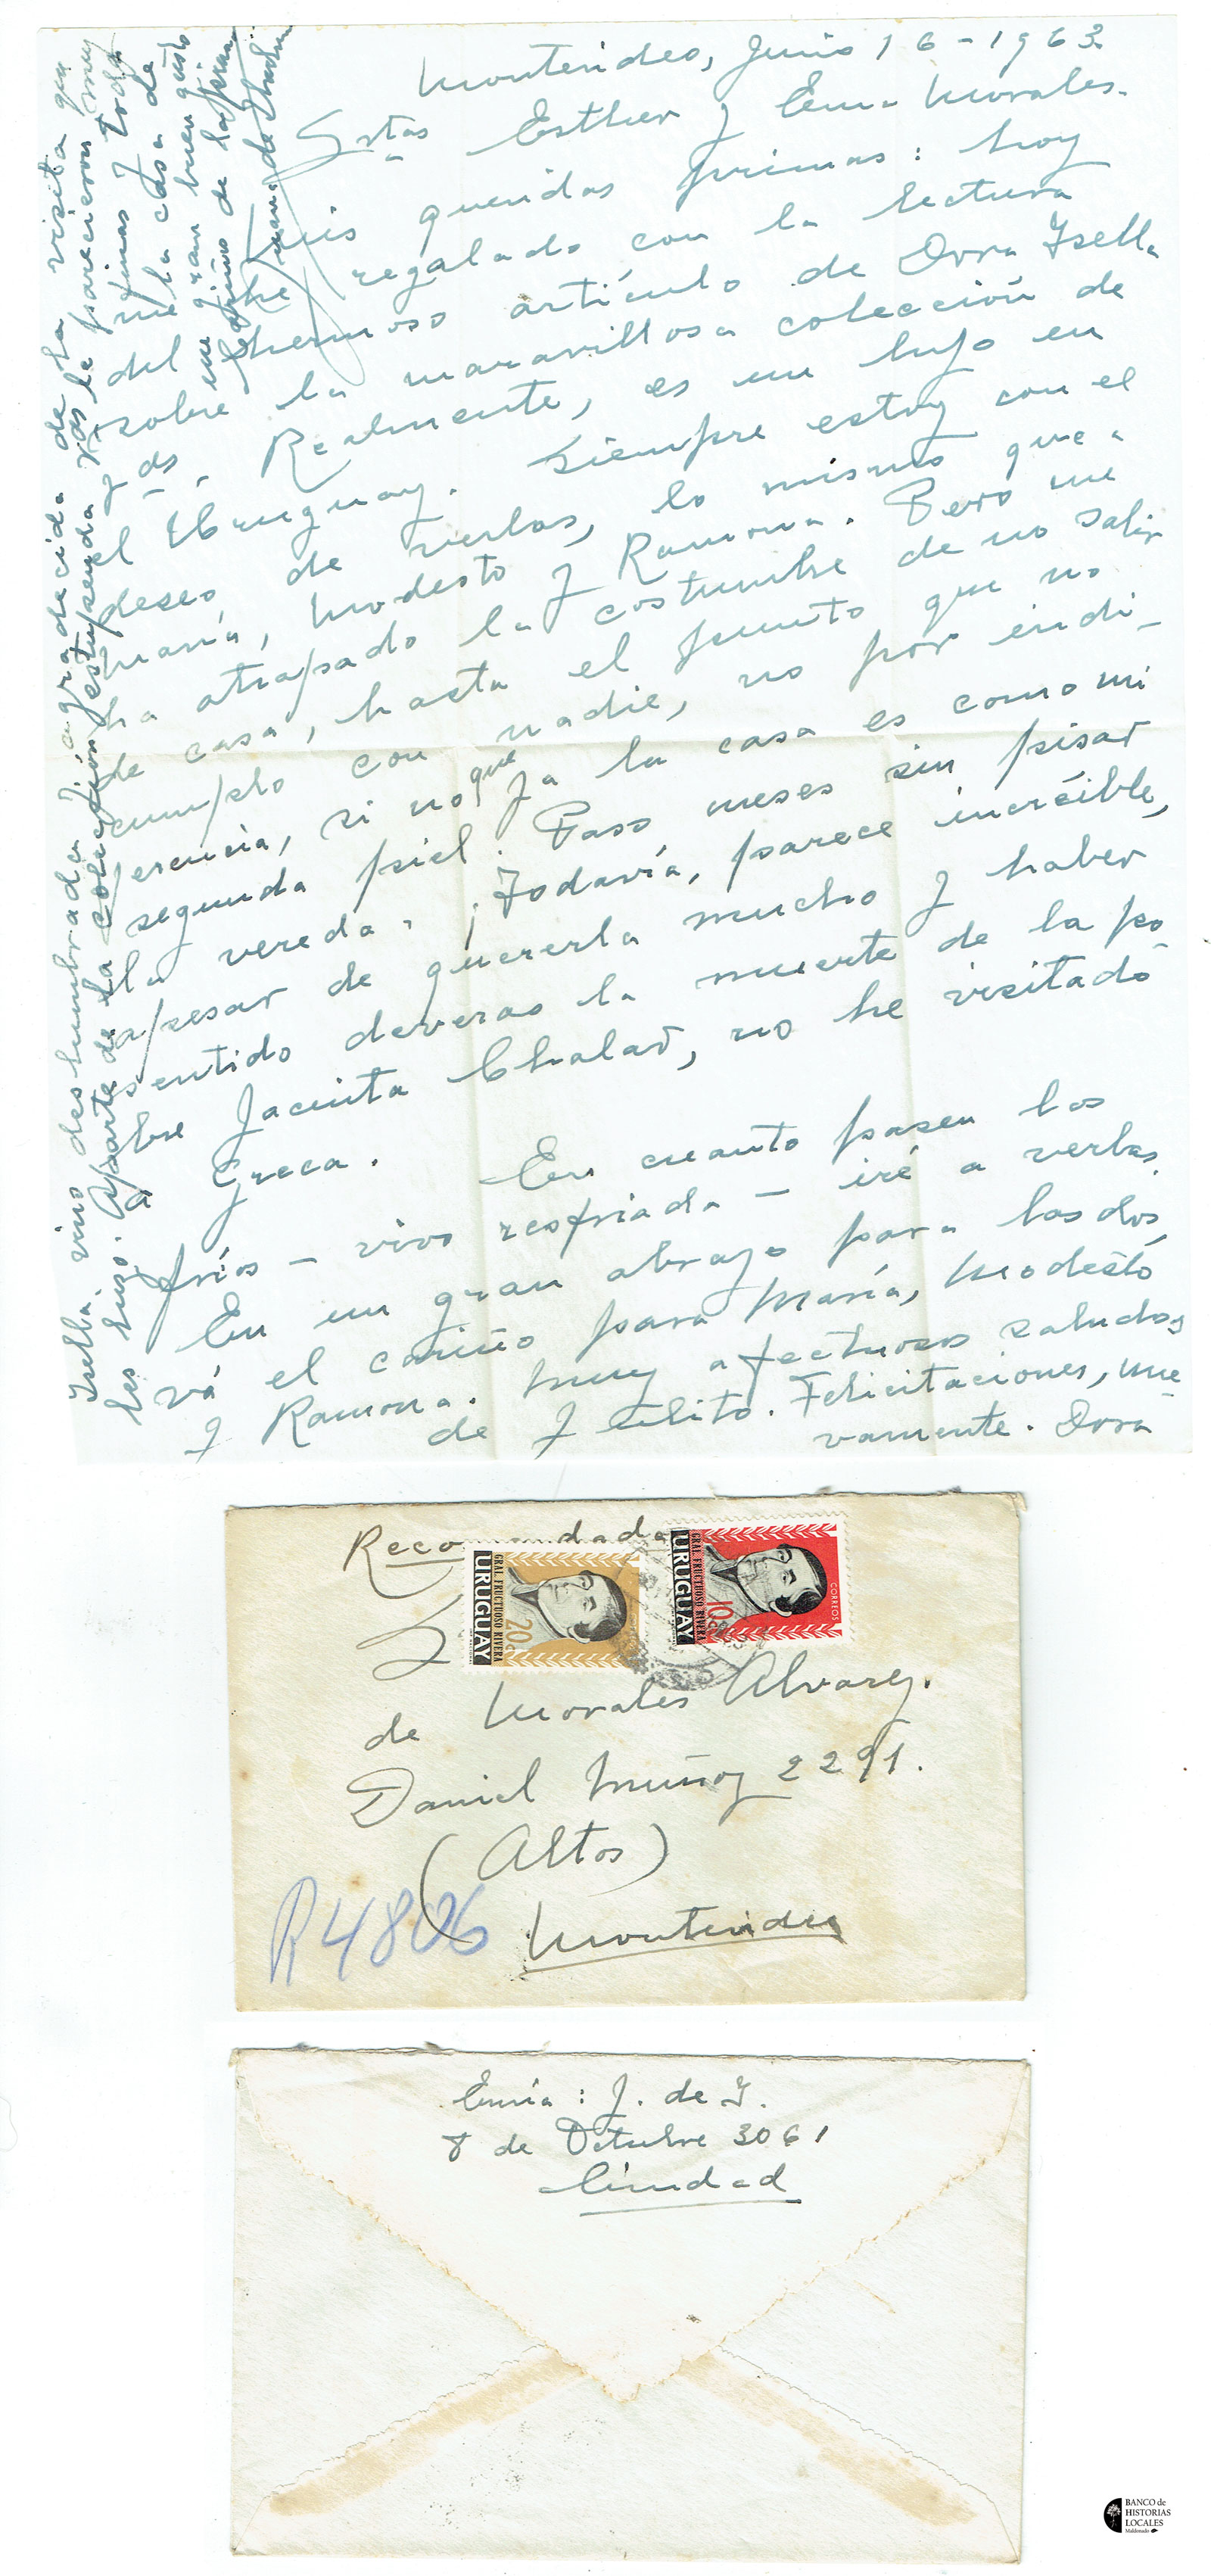 Montevideo, Junio 16-1963
Srtas Esther y Ema Morales.
Mis queridas primas: hoy
me he regalado con la lectura
del hermoso artículo de Dora Isella
sobre la maravillosa colección de
Uds. Realmente, es un lujo en
el Uruguay. Siempre estoy con el
deseo de verlas, lo mismo que a
María, Modesto y Ramona. Pero me
ha atrapado la costumbre de no salir
de casa, hasta el punto que no
cumplo con nadie, no por indi-
ferencia, si no que ya la casa es como mi
segunda piel. Paso meses sin pisar
la vereda. ¡Todavía, parece increíble,
apesar de quererla mucho y haber
sentido deveras la muerte de la po-
bre Jacinta Chalar, no he visitado
a Greca. En cuanto pasen los
fríos - vivo resfriada - iré a verlas.
En un gran abrazo para las dos,
vá el cariño para María, Modesto
y Ramona. Muy afectuosos saludos
de Julito. Felicitaciones, nue-
vamente. Dora
Isella vino deslumbrada y agradecida de la visita que
les hizo. Aparte de la colección estupenda Vds le parecieron muy
finas y toda
la casa de
un gran buen gusto
cariño de la prima
Juana de Ibarbourou
Recomendada
GRAL. FRUCTUOSO RIVERA
URUGUAY
20c
CORREOS
GRAL. FRUCTUOSO RIVERA
URUGUAY
10c
de Morales Alvarez.
Daniel Muñoz 2291.
(Altos)
R4806
Montevideo
Envía: J. de I.
8 de Octubre 3061
Ciudad
BANCO de
HISTORIAS
LOCALES
Maldonado